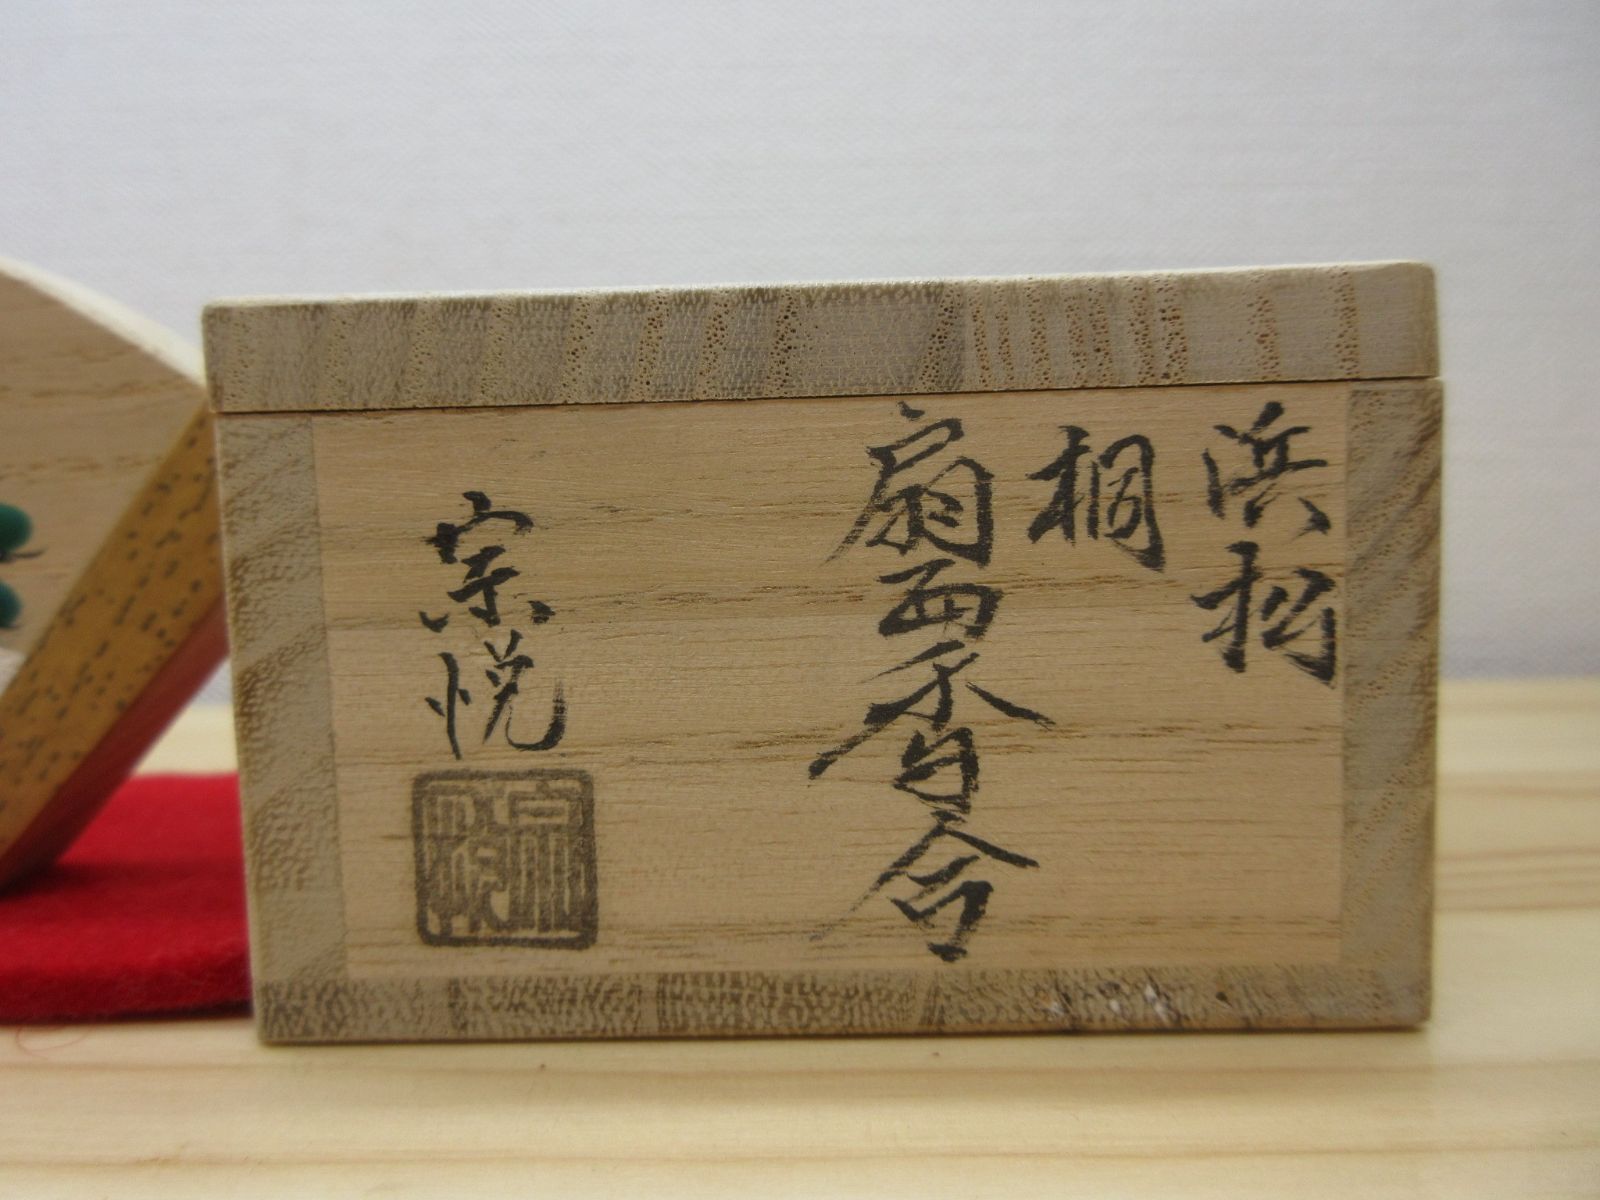 浜松
桐
扇面香合
宗悦